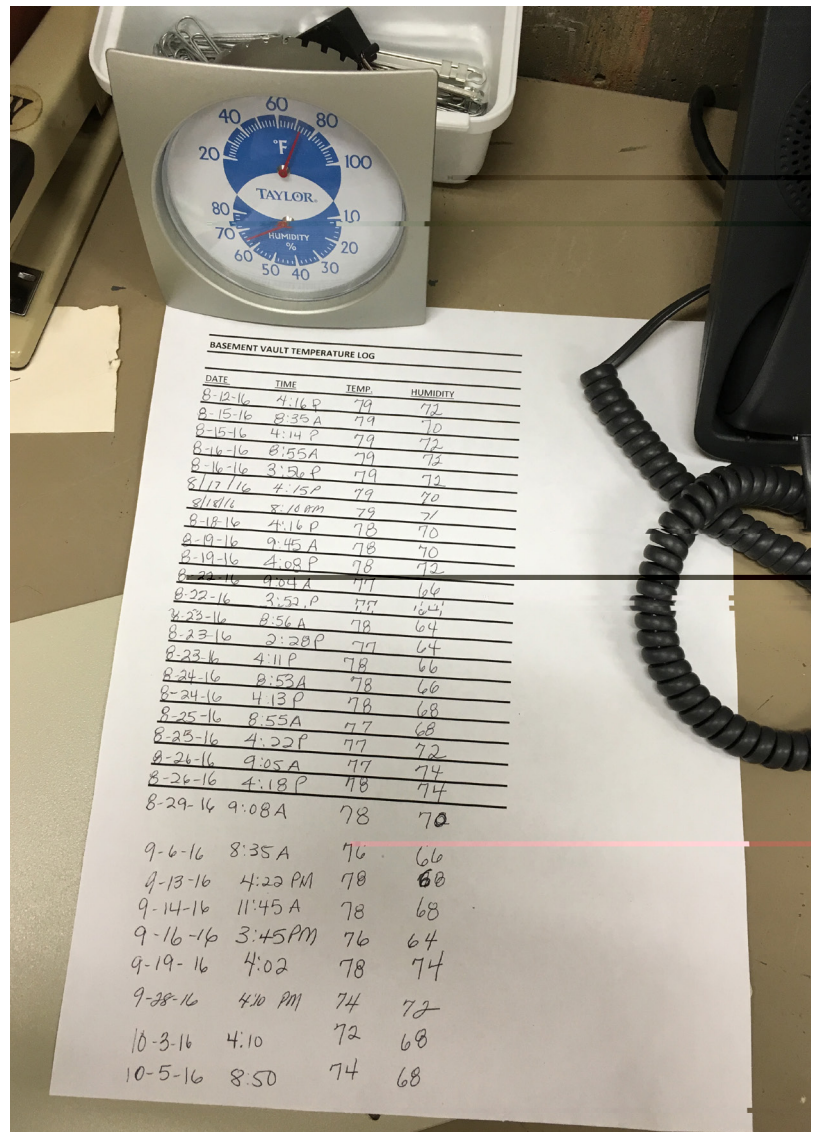 40 60 80
20 °F 100
TAYLOR
80 10
70 HUMIDITY 20
60 % 30
50 40
BASEMENT VAULT TEMPERATURE LOG
DATE TIME TEMP. HUMIDITY
8-12-16 4:16 P 79 72
8-15-16 8:35 A 79 70
8-15-16 4:14 P 79 72
8-16-16 8:55 A 79 73
8-16-16 3:56 P 79 72
8/17/16 4:15 P 79 70
8/18/16 8:10 AM 79 71
8-18-16 4:16 P 78 70
8-19-16 9:45 A 78 70
8-19-16 4:08 P 78 72
8-22-16 9:04 A 77 66
8-22-16 3:52 P 77 64
8-23-16 8:56 A 78 64
8-23-16 2:28 P 77 64
8-23-16 4:11 P 78 66
8-24-16 8:53 A 78 66
8-24-16 4:13 P 78 68
8-25-16 8:55 A 77 68
8-25-16 4:22 P 77 72
8-26-16 9:05 A 77 74
8-26-16 4:18 P 78 74
8-29-16 9:08 A 78 70
9-6-16 8:35 A 76 66
9-13-16 4:22 PM 78 68
9-14-16 11:45 A 78 68
9-16-16 3:45 PM 76 64
9-19-16 4:02 78 74
9-28-16 4:10 PM 74 72
10-3-16 4:10 72 68
10-5-16 8:50 74 68